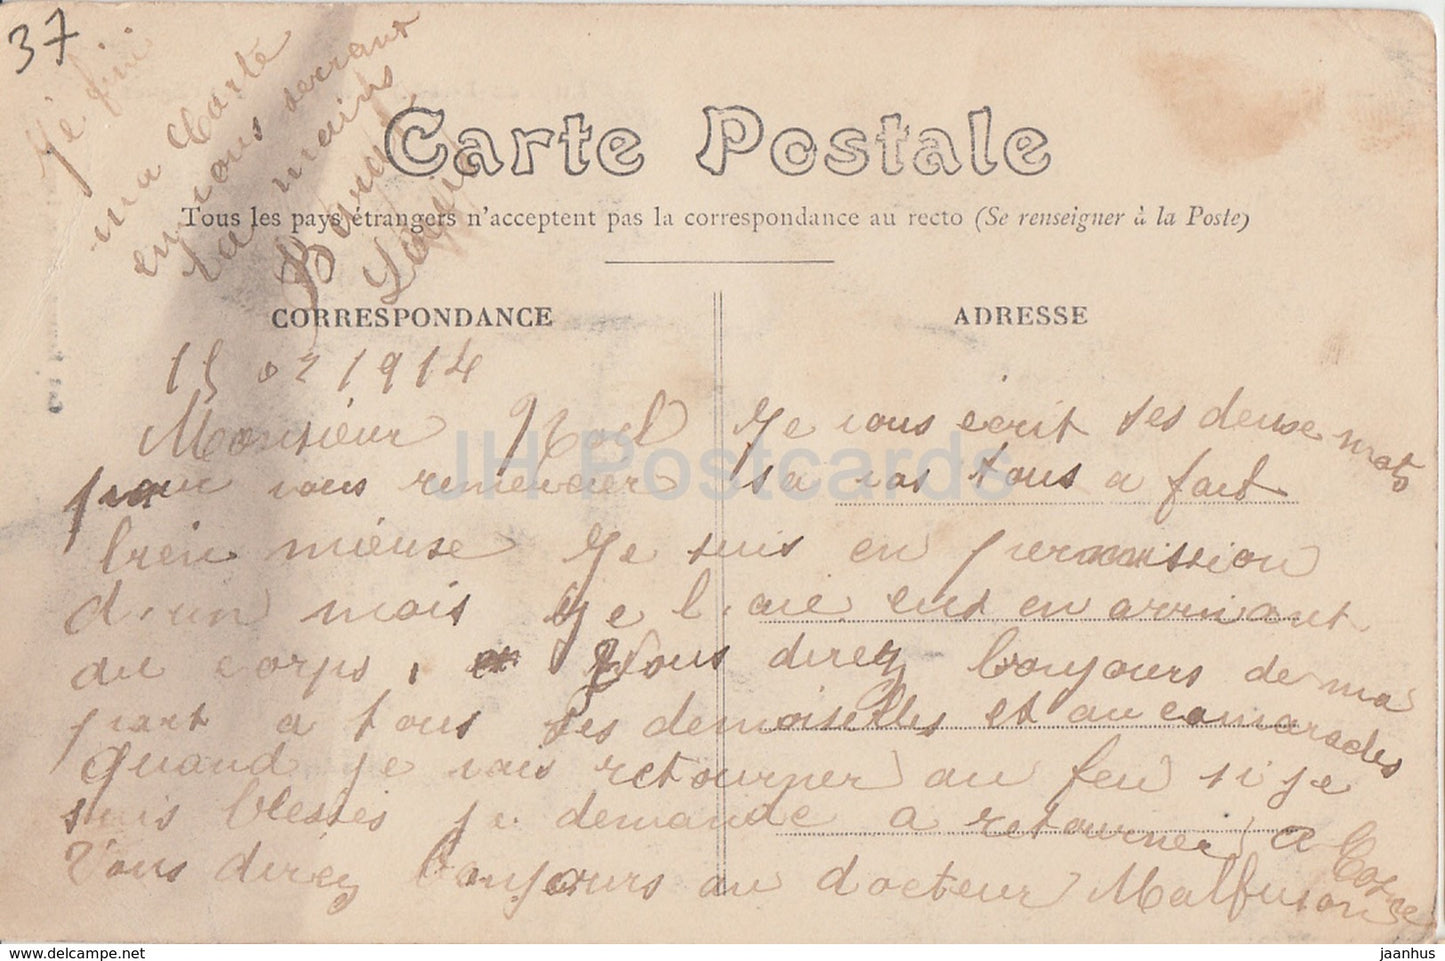 37
Je fini
ma Carte
en vous serrant
la mains
Carte Postale
Tous les pays étrangers n'acceptent pas la correspondance au recto (Se renseigner à la Poste)
CORRESPONDANCE
ADRESSE
15 02 1914
Monsieur Noel Je vous ecrit ses deuse mots
pour vous remercier sa vas tous a fait
bien mieuse Je suis en permission
d'un mois Je l'aie eut en arrivant
au corps, Vous direz bonjours de ma
part a tous ses demoiselles et au camarades
Quand je vais retourner au feu si je
suis blesses je demande a retourner a
Vous direz bonjours au docteur
JH Postcards
hippostcard.net
jaanhus